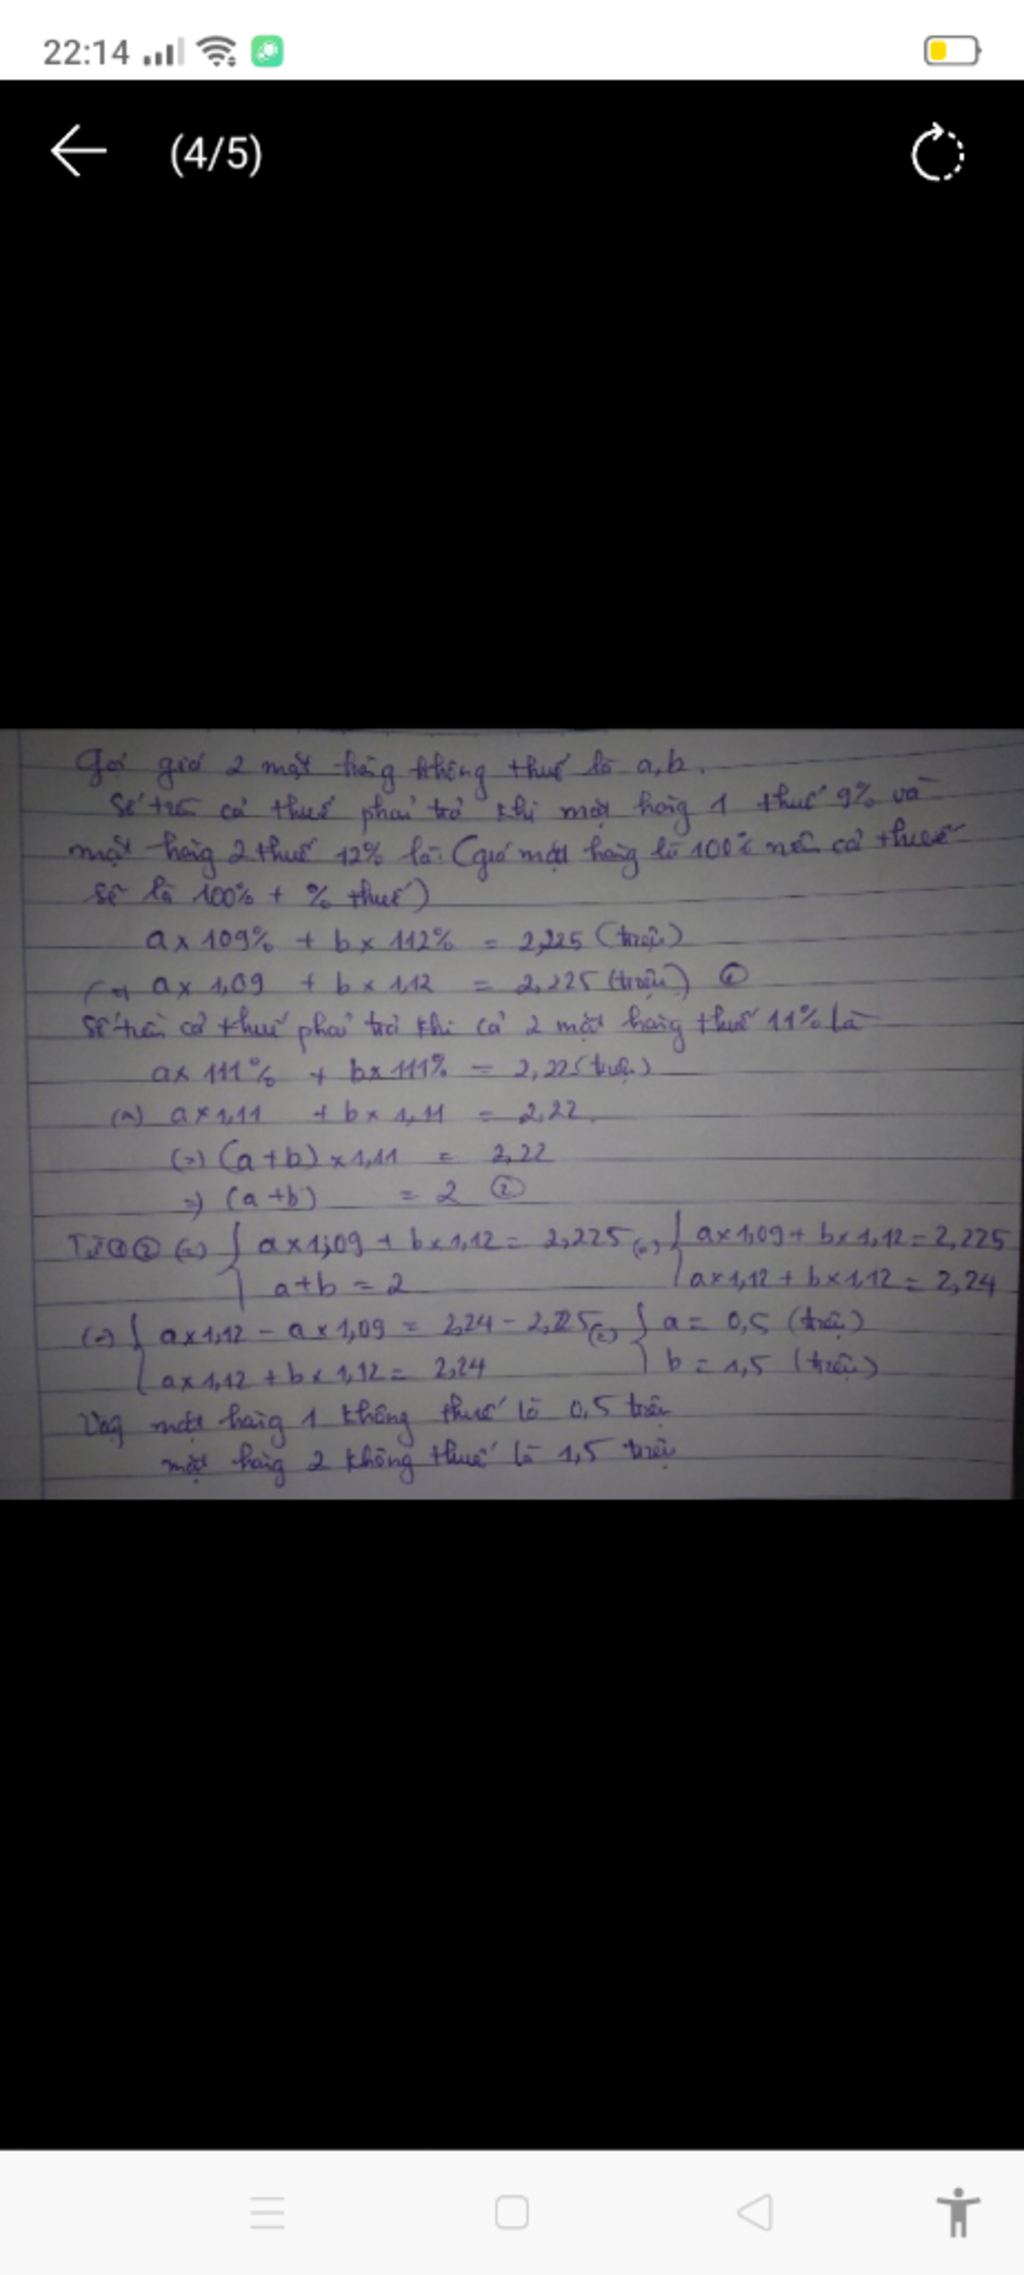 22:14
(4/5)
Gọi giá 2 mặt hàng không thuế là a, b.
Số tiền cả thuế phải trả khi mặt hàng 1 thuế 9% và
mặt hàng 2 thuế 12% là: (giá mặt hàng là 100% nên cả thuế
sẽ là 100% + % thuế)
a x 109% + b x 112% = 2,225 (triệu)
(=) a x 1,09 + b x 1,12 = 2,225 (triệu) ①
Số tiền cả thuế phải trả khi cả 2 mặt hàng thuế 11% là
a x 111% + b x 111% = 2,22 (triệu)
(=) a x 1,11 + b x 1,11 = 2,22.
(=) (a + b) x 1,11 = 2,22
=> (a + b) = 2 ②
Từ ① ② (=) { a x 1,09 + b x 1,12 = 2,225 (=) { a x 1,09 + b x 1,12 = 2,225
a + b = 2 a x 1,12 + b x 1,12 = 2,24
(=) { a x 1,12 - a x 1,09 = 2,24 - 2,225 (=) { a = 0,5 (triệu)
a x 1,12 + b x 1,12 = 2,24 b = 1,5 (triệu)
Vậy mặt hàng 1 không thuế là 0,5 triệu
mặt hàng 2 không thuế là 1,5 triệu